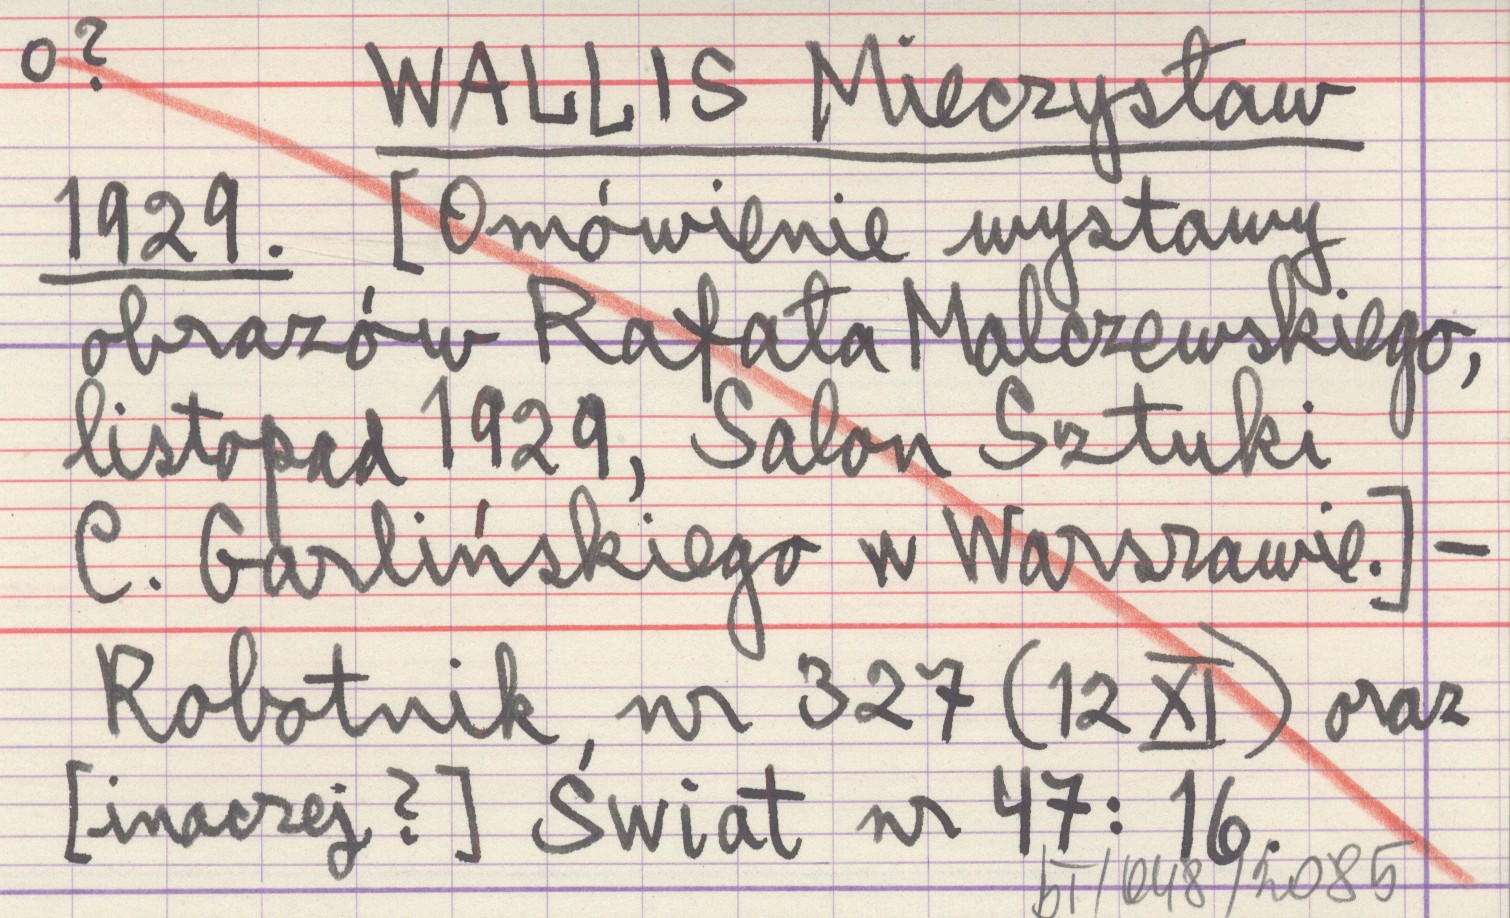 o?
WALLIS Mieczysław
1929. [Omówienie wystawy
obrazów Rafała Malczewskiego,
listopad 1929, Salon Sztuki
C. Garlińskiego w Warszawie.] -
Robotnik, nr 327 (12 XI) oraz
[inaczej?] Świat nr 47: 16.
bT/048/2085